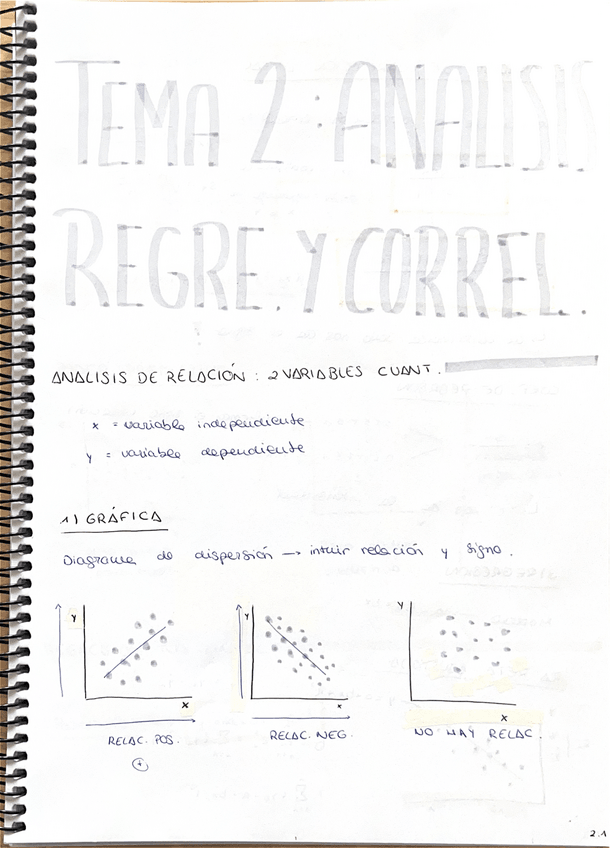 TEMA 2: ANALISIS
REGRE. Y CORREL.
ANALISIS DE RELACIÓN: 2 VARIABLES CUANT.
x = variable independiente
y = variable dependiente
1) GRÁFICA
Diagrama de dispersión → intuir relación y signo.
y y y
x x x
RELAC. POS. RELAC. NEG. NO HAY RELAC.
+
2.1